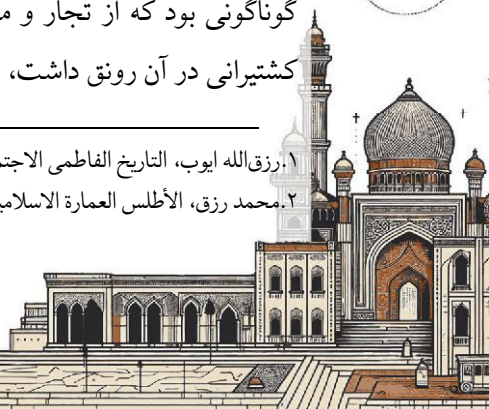 گوناگونی بود که از تجار و
کشتیرانی در آن رونق داشت،
۱.رزق‌الله ایوب، التاریخ الفاطمی
۲.محمد رزق، الأطلس العمارة